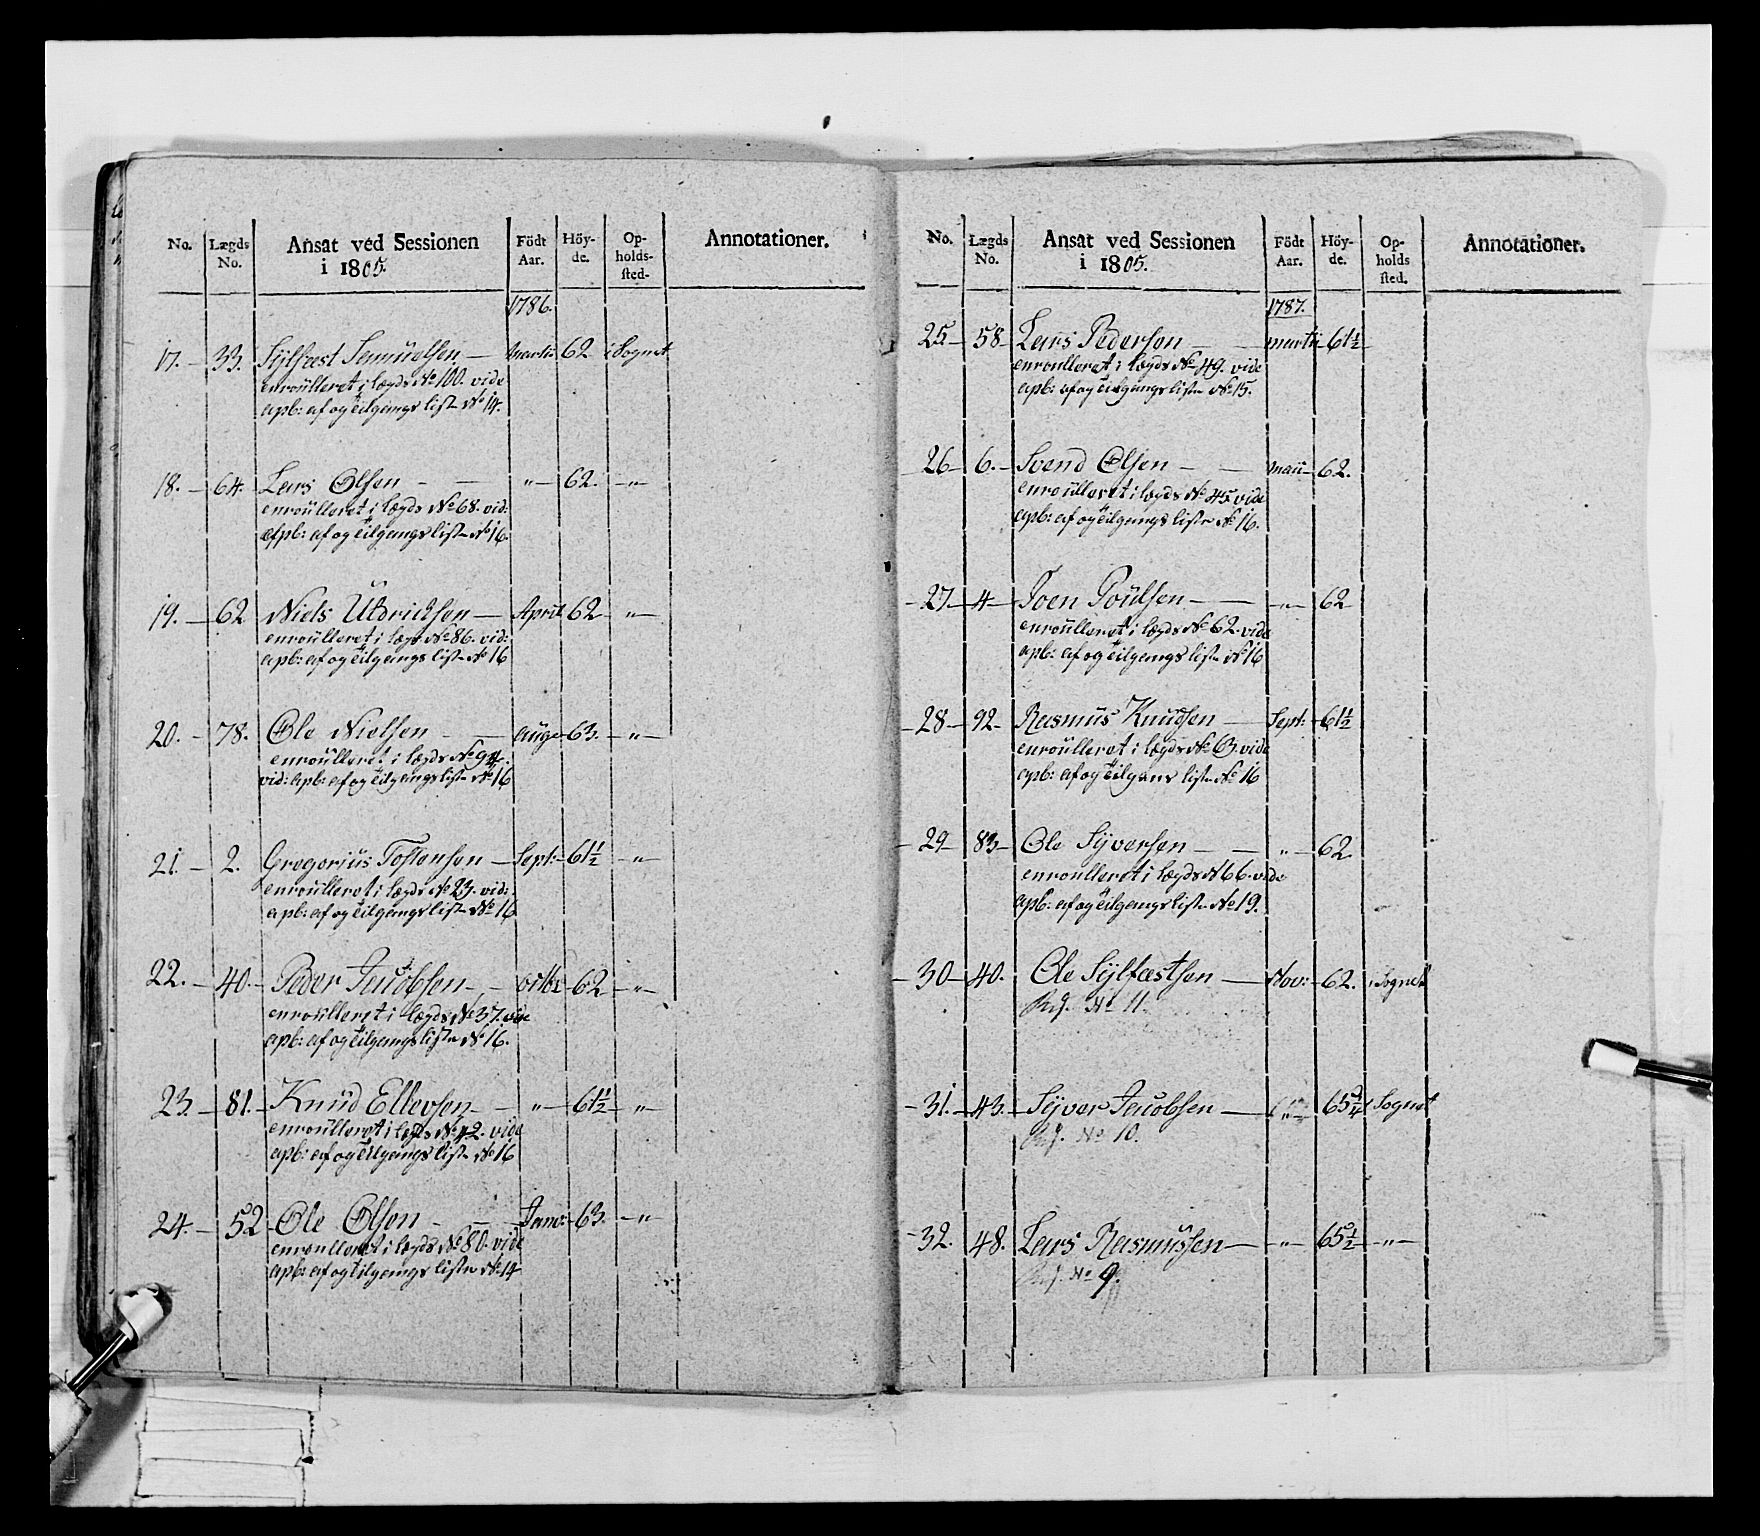 No. Lægds No. Ansat ved Sessionen i 1805. Födt Aar. Höy-de. Op-holds-sted. Annotationer.
1786.
17. 33. Sylfæst Samuelsen martii 62 i Sognet
enroulleret i lægds No 100. vide
apb: af og tilgangs liste No 14.
18. 64. Lars Olsen " 62. "
enroulleret i lægds No 68. vid:
apb: af og tilgangs liste No 16.
19. 62 Niels Uldrichsen April 62 "
enroulleret i lægds No 86. vid:
apb: af og tilgangs liste No 16
20. 78. Ole Nielsen aug 63. "
enroulleret i lægds No 94.
vid: apb: af og tilgangs liste No 16
21. 2. Gregorius Tostensen Sept: 61 1/2 "
enroulleret i lægds No 23. vid:
apb: af og tilgangs liste No 16
22. 40. Peder Jacobsen octbr 62 "
enroulleret i lægds No 37. vide
apb: af og tilgangs liste No 16.
23. 81. Knud Ellevsen " 61 1/2 "
enroulleret i lægds No 42. vide
apb: af og tilgangs liste No 16
24. 52 Ole Olsen Janv: 63. "
enroulleret i lægds No 80. vide
apb: af og tilgangs liste No 14
No. Lægds No. Ansat ved Sessionen i 1805. Födt Aar. Höy-de. Op-holds sted. Annotationer.
1787.
25 58 Lars Pederson martii 61 1/2
enroulleret i lægds No 49. vide
apb: af og tilgangs liste No 15.
26 6. Svend Olsen maii 62.
enroulleret i lægds No 45. vide
apb: af og tilgangs liste No 16.
27 4 Joen Poulsen " 62
enroulleret i lægds No 62. vide
apb: af og tilgangs liste No 16
28 92 Rasmus Knudsen Sept: 61 1/2
enroulleret i lægds No 63. vide
apb: af og tilgans liste No 16
29 83 Ole Syversen " 62
enroulleret i lægds N 66. vide
apb: af og tilgangs liste No 19.
30 40. Ole Sylfæstsen Nov: 62. i Sognet
No 11.
31. 43. Syver Jacobsen " 65 3/4 i Sognet
No 10.
32. 48. Lars Rasmussen " 65 1/2 "
No 9.